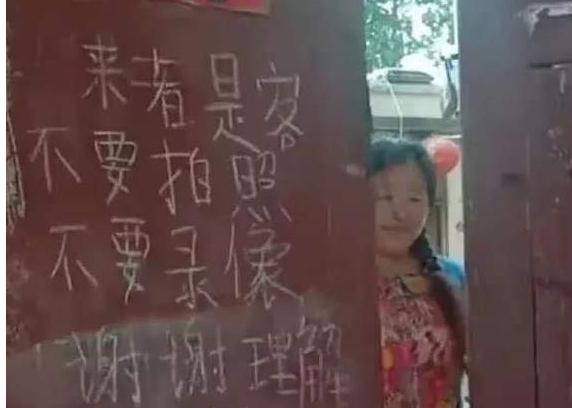 来者是客
不要拍照
不要录像
谢谢理解